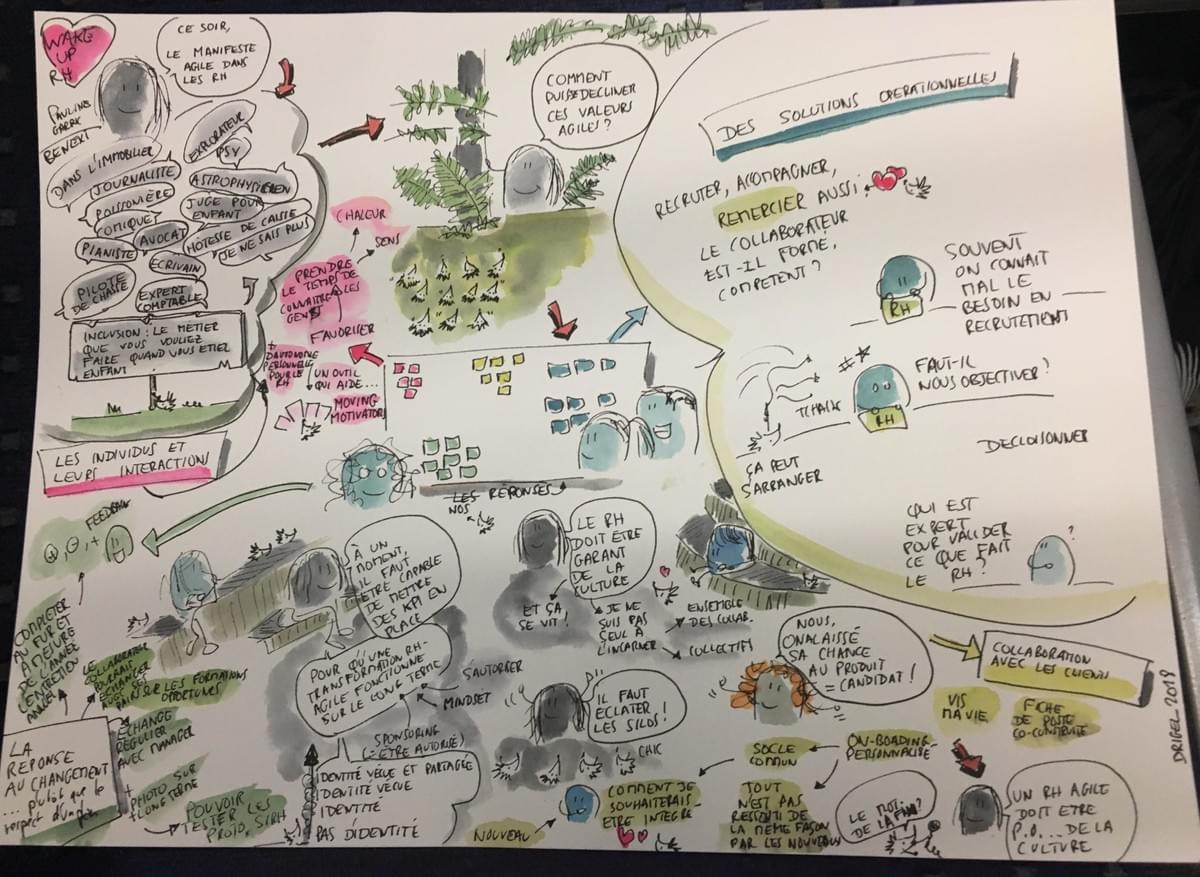 WAKE
UP
RH
CE SOIR,
LE MANIFESTE
AGILE DANS
LES RH
PAULINE
BENEKI
DANS L'IMMOBILIER
EXPLORATEUR
PSY
JOURNALISTE
ASTROPHYSICIEN
POISSONIÈRE
JUGE POUR
ENFANT
COMIQUE
PIANISTE
AVOCAT
HÔTESSE DE CAISSE
JE NE SAIS PLUS
ÉCRIVAIN
PILOTE
DE CHASSE
EXPERT
COMPTABLE
INCLUSION : LE MÉTIER
QUE VOUS VOULIEZ
FAIRE QUAND VOUS ETIEZ
ENFANT
LES INDIVIDUS ET
LEURS INTERACTIONS
CHALEUR
SENS
PRENDRE
LE TEMPS DE
CONNAITRE LES
GENS
FAVORISER
+
D'AUTONOMIE
PERSONNELLE
POUR LE
RH
UN OUTIL
QUI AIDE...
MOVING
MOTIVATORS
COMMENT
PUIS-JE DECLINER
CES VALEURS
AGILES ?
LES RÉPONSES
NOS
DES SOLUTIONS OPERATIONNELLES
RECRUTER, ACCOMPAGNER,
REMERCIER AUSSI :
LE COLLABORATEUR
EST-IL FORMÉ,
COMPETENT ?
SOUVENT
ON CONNAIT
MAL LE
BESOIN EN
RECRUTEMENT
RH
FAUT-IL
NOUS OBJECTIVER ?
RH
TCHAK
ÇA PEUT
S'ARRANGER
DECLOISONNER
QUI EST
EXPERT
POUR VALIDER
CE QUE FAIT
LE RH ?
?
COLLABORATION
AVEC LES CLIENTS
VIS
MA VIE
FICHE
DE POSTE
CO-CONSTRUITE
ON-BOADING
PERSONNALISÉ
SOCLE
COMMUN
TOUT
N'EST PAS
RESSENTI DE
LA MÊME FAÇON
PAR LES NOUVEAUX
COMMENT JE
SOUHAITERAIS
ETRE INTEGRÉ
NOUVEAU
LE MOT
DE LA FIN ?
UN RH AGILE
DOIT ETRE
P.O... DE LA
CULTURE
DRIGEL 2019
NOUS,
ON A LAISSÉ
SA CHANCE
AU PRODUIT
= CANDIDAT !
IL FAUT
ECLATER
LES SILOS !
CHIC
LE RH
DOIT ÊTRE
GARANT
DE LA
CULTURE
ET ÇA
SE VIT !
JE NE
SUIS PAS
SEUL À
L'INCARNER
ENSEMBLE
DES COLLAB.
COLLECTIF
À UN
MOMENT,
IL FAUT
ETRE CAPABLE
DE METTRE
DES KPI EN
PLACE
POUR QU'UNE
TRANSFORMATION RH-
AGILE FONCTIONNE
SUR LE LONG TERME
S'AUTORISER
MINDSET
SPONSORING
(= ÊTRE AUTORISÉ)
IDENTITÉ VÉCUE ET PARTAGÉE
IDENTITÉ VÉCUE
IDENTITÉ
PAS D'IDENTITÉ
FEEDBACK
COMPLETER
AU FUR ET
À MESURE
DE L'ANNÉE
L'ENTRETIEN
ANNUEL
LE
COLLABORATEUR
POURRAIT
ECHANGER
SUR LES FORMATIONS
OPPORTUNES
ECHANGE
RÉGULIER
AVEC MANAGER
+
PHOTO SUR
+ LONG TERME
POUVOIR
TESTER LES
PROTO, SIRH
LA
REPONSE
AU CHANGEMENT
... plutôt que le
respect d'un plan